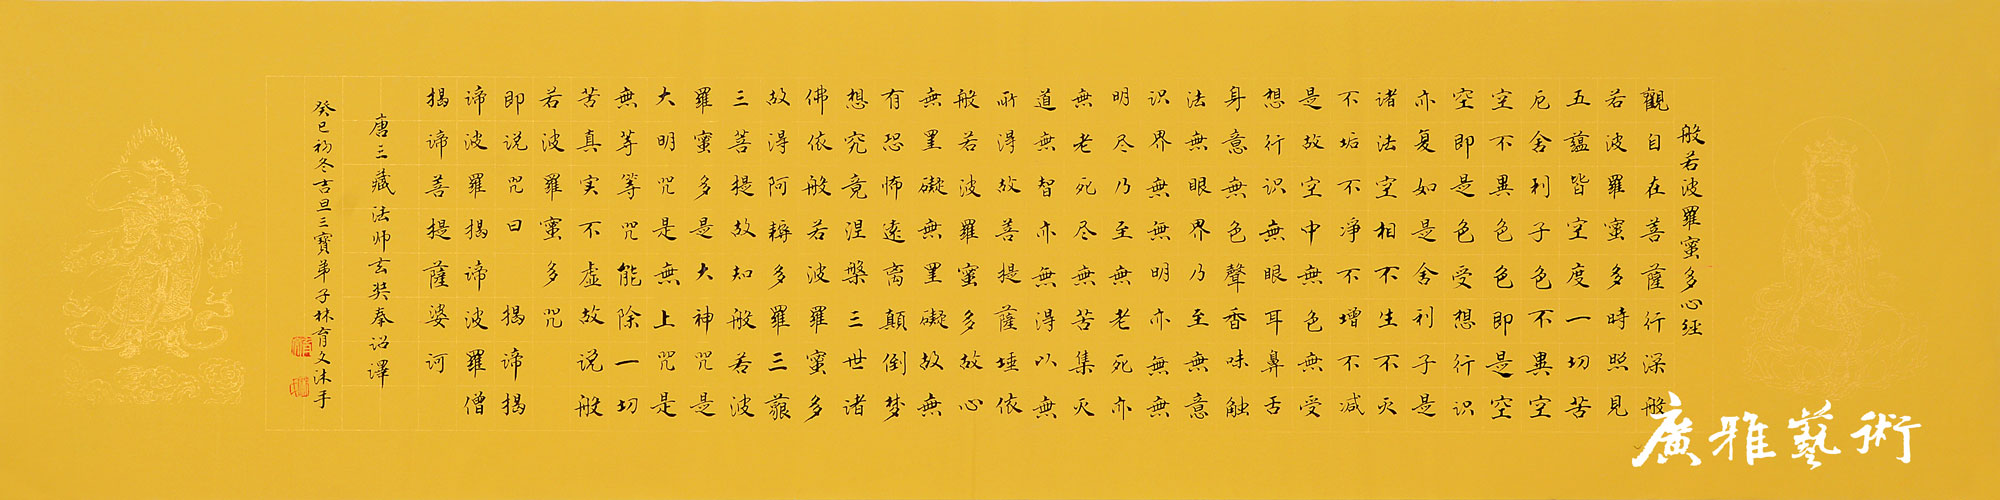 般若波羅蜜多心經
觀自在菩薩行深般
若波羅蜜多時照見
五蘊皆空度一切苦
厄舍利子色不異空
空不異色色即是空
空即是色受想行识
亦复如是舍利子是
诸法空相不生不灭
不垢不净不增不减
是故空中無色無受
想行识無眼耳鼻舌
身意無色聲香味触
法無眼界乃至無意
识界無無明亦無無
明尽乃至無老死亦
無老死尽無苦集灭
道無智亦無得以無
所得故菩提薩埵依
般若波羅蜜多故心
無罣礙無罣礙故無
有恐怖遠离顛倒梦
想究竟涅槃三世诸
佛依般若波羅蜜多
故得阿耨多羅三藐
三菩提故知般若波
羅蜜多是大神咒是
大明咒是無上咒是
無等等咒能除一切
苦真实不虚故说般
若波羅蜜多咒
即说咒曰 揭谛揭
谛波羅揭谛波羅僧
揭谛菩提薩婆诃
唐三藏法师玄奘奉诏譯
癸巳初冬吉旦三寶弟子林育文沐手
廣雅藝術